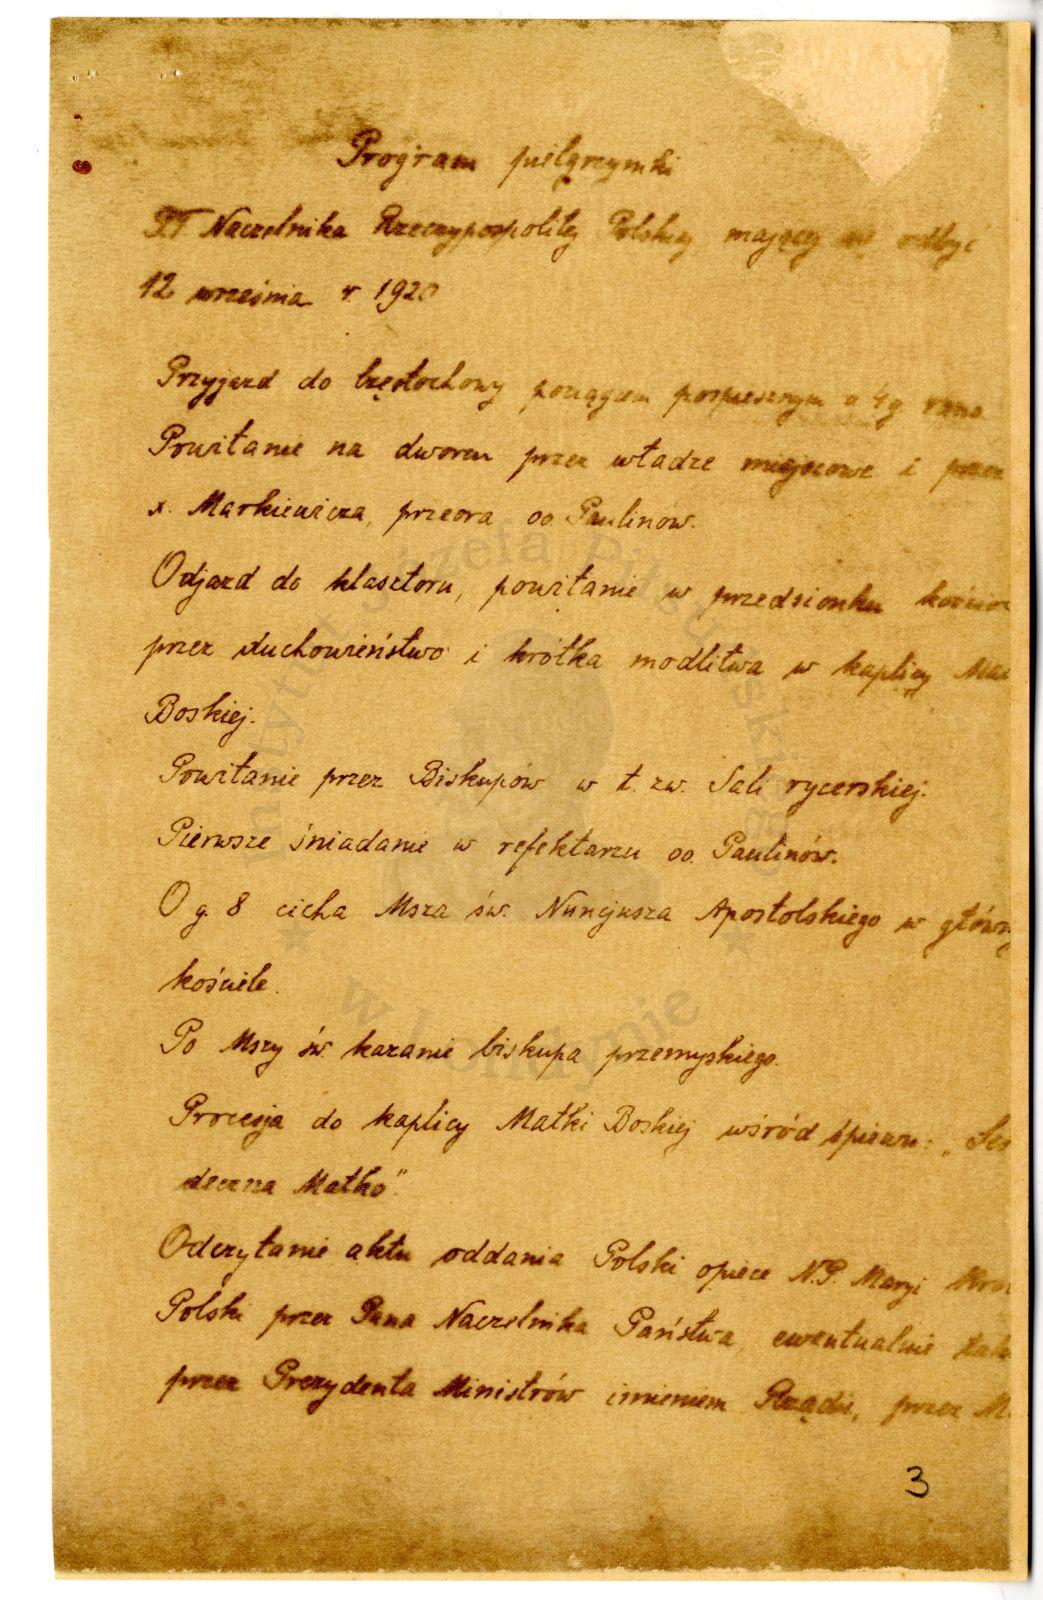 Program pielgrzymki
Naczelnika Rzeczypospolitej Polskiej mającej się odbyć
12 września r. 1920
Przyjazd do Częstochowy pociągiem pospiesznym o 4 g. rano
Powitanie na dworcu przez władze miejscowe i przez
x. Markiewicza, przeora oo. Paulinów.
Odjazd do klasztoru, powitanie w przedsionku
przez duchowieństwo i krótka modlitwa w kaplicy
Boskiej.
Powitanie przez Biskupów w t. zw. Sali rycerskiej.
Pierwsze śniadanie w refektarzu oo. Paulinów.
O g. 8 cicha Msza św. Nuncjusza Apostolskiego w
kościele.
Po Mszy św. kazanie biskupa przemyskiego.
Procesja do kaplicy Matki Boskiej wśród śpiewu: „Ser
deczna Matko".
Odczytanie aktu oddania Polski opiece N.P. Maryi
Polski przez Pana Naczelnika Państwa, ewentualnie
przez Prezydenta Ministrów imieniem Rządu, przez
3
Instytut Józefa Piłsudskiego
w Londynie